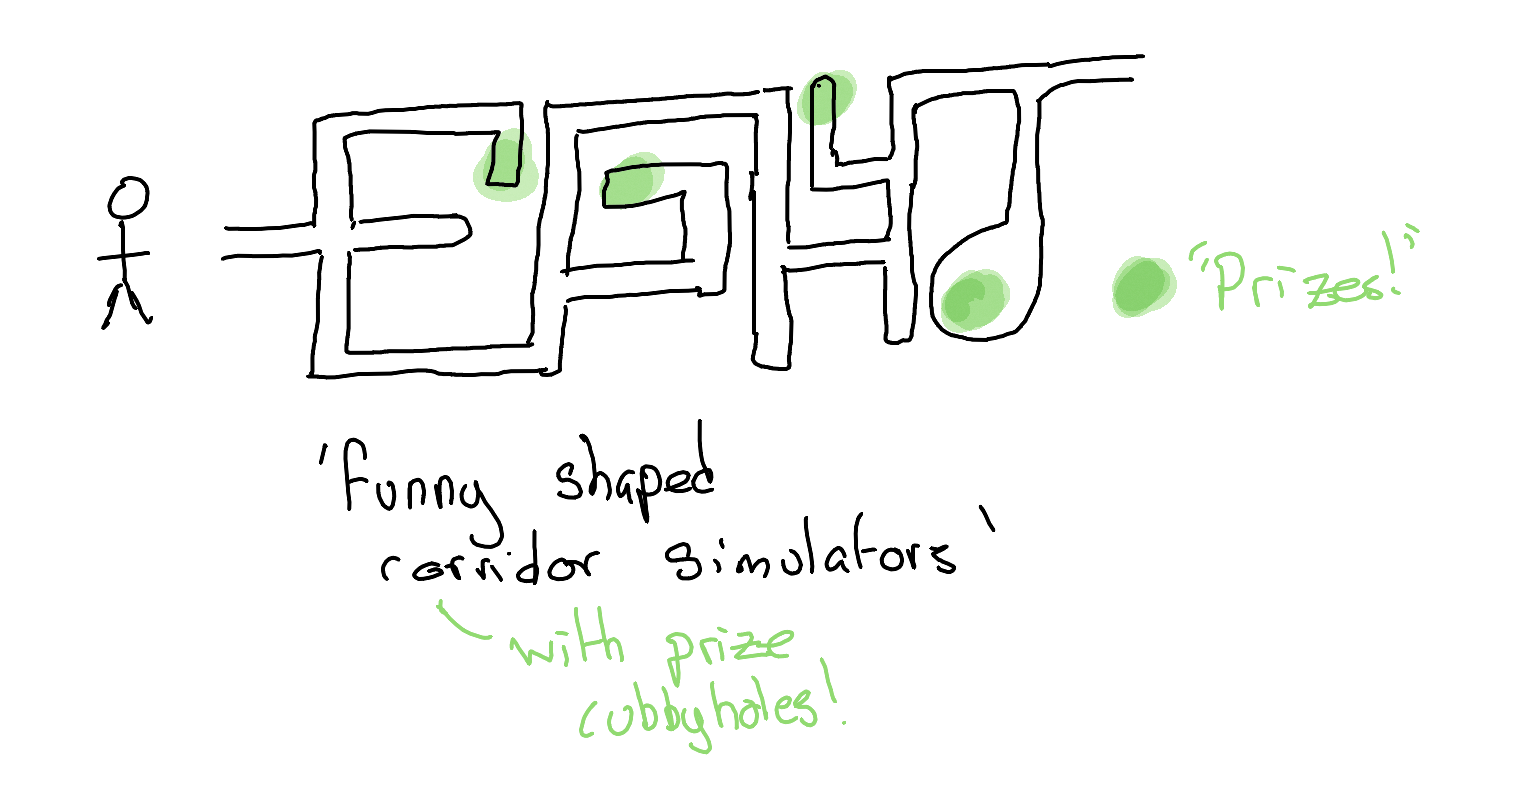 "Prizes!"
'funny shaped
corridor simulators'
with prize
cubbyholes!